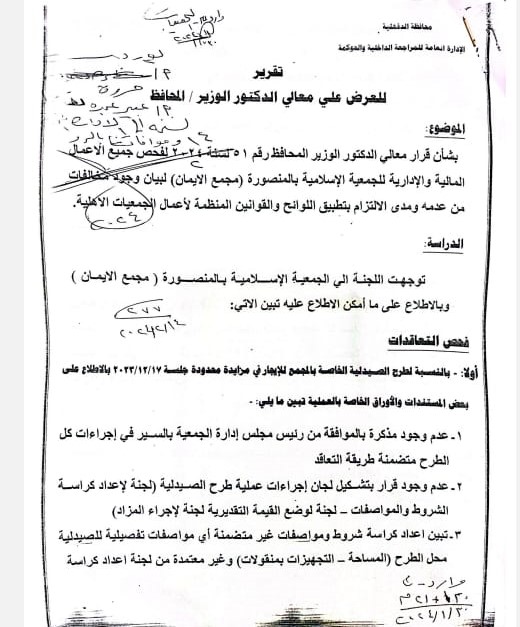 محافظة الدقهلية
الإدارة العامة للمراجعة الداخلية والحوكمة
تقرير
للعرض علي معالي الدكتور الوزير / المحافظ
الموضوع:
بشأن قرار معالي الدكتور الوزير المحافظ رقم ٥١ لسنة ٢٠٢٤ لفحص جميع الأعمال
المالية والإدارية للجمعية الإسلامية بالمنصورة (مجمع الايمان) لبيان وجود مخالفات
من عدمه ومدى الالتزام بتطبيق اللوائح والقوانين المنظمة لأعمال الجمعيات الأهلية.
الدراسة:
توجهت اللجنة الي الجمعية الإسلامية بالمنصورة ( مجمع الايمان )
وبالاطلاع على ما أمكن الاطلاع عليه تبين الاتي:
٢٧٧
فحص التعاقدات
أولا: - بالنسبة لطرح الصيدلية الخاصة بالمجمع للإيجار في مزايدة محدودة جلسة ٢٠٢٣/١٢/١٧ بالاطلاع على
بعض المستندات والأوراق الخاصة بالعملية تبين ما يلي: -
١- عدم وجود مذكرة بالموافقة من رئيس مجلس إدارة الجمعية بالسير في إجراءات كل
الطرح متضمنة طريقة التعاقد
٢- عدم وجود قرار بتشكيل لجان إجراءات عملية طرح الصيدلية (لجنة لإعداد كراسة
الشروط والمواصفات – لجنة لوضع القيمة التقديرية لجنة لإجراء المزاد)
٣- تبين اعداد كراسة شروط ومواصفات غير متضمنة أي مواصفات تفصيلية للصيدلية
محل الطرح (المساحة – التجهيزات بمنقولات) وغير معتمدة من لجنة اعداد كراسة